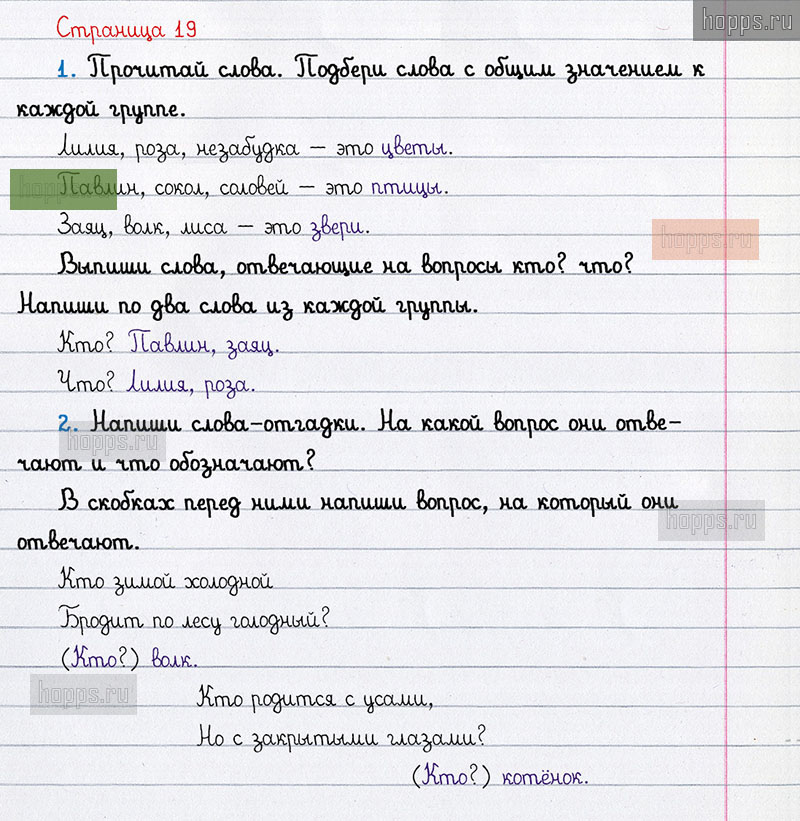 hopps.ru
Страница 19
1. Прочитай слова. Подбери слова с общим значением к
каждой группе.
Лилия, роза, незабудка – это цветы.
hopps.ru
Павлин, сокол, соловей – это птицы.
Заяц, волк, лиса – это звери.
hopps.ru
Выпиши слова, отвечающие на вопросы кто? что?
Напиши по два слова из каждой группы.
Кто? Павлин, заяц.
Что? Лилия, роза.
2. Напиши слова-отгадки. На какой вопрос они отве-
hopps.ru
чают и что обозначают?
В скобках перед ними напиши вопрос, на который они
hopps.ru
отвечают.
Кто зимой холодной
Бродит по лесу голодный?
(Кто?) волк.
hopps.ru
Кто родится с усами,
Но с закрытыми глазами?
(Кто?) котёнок.